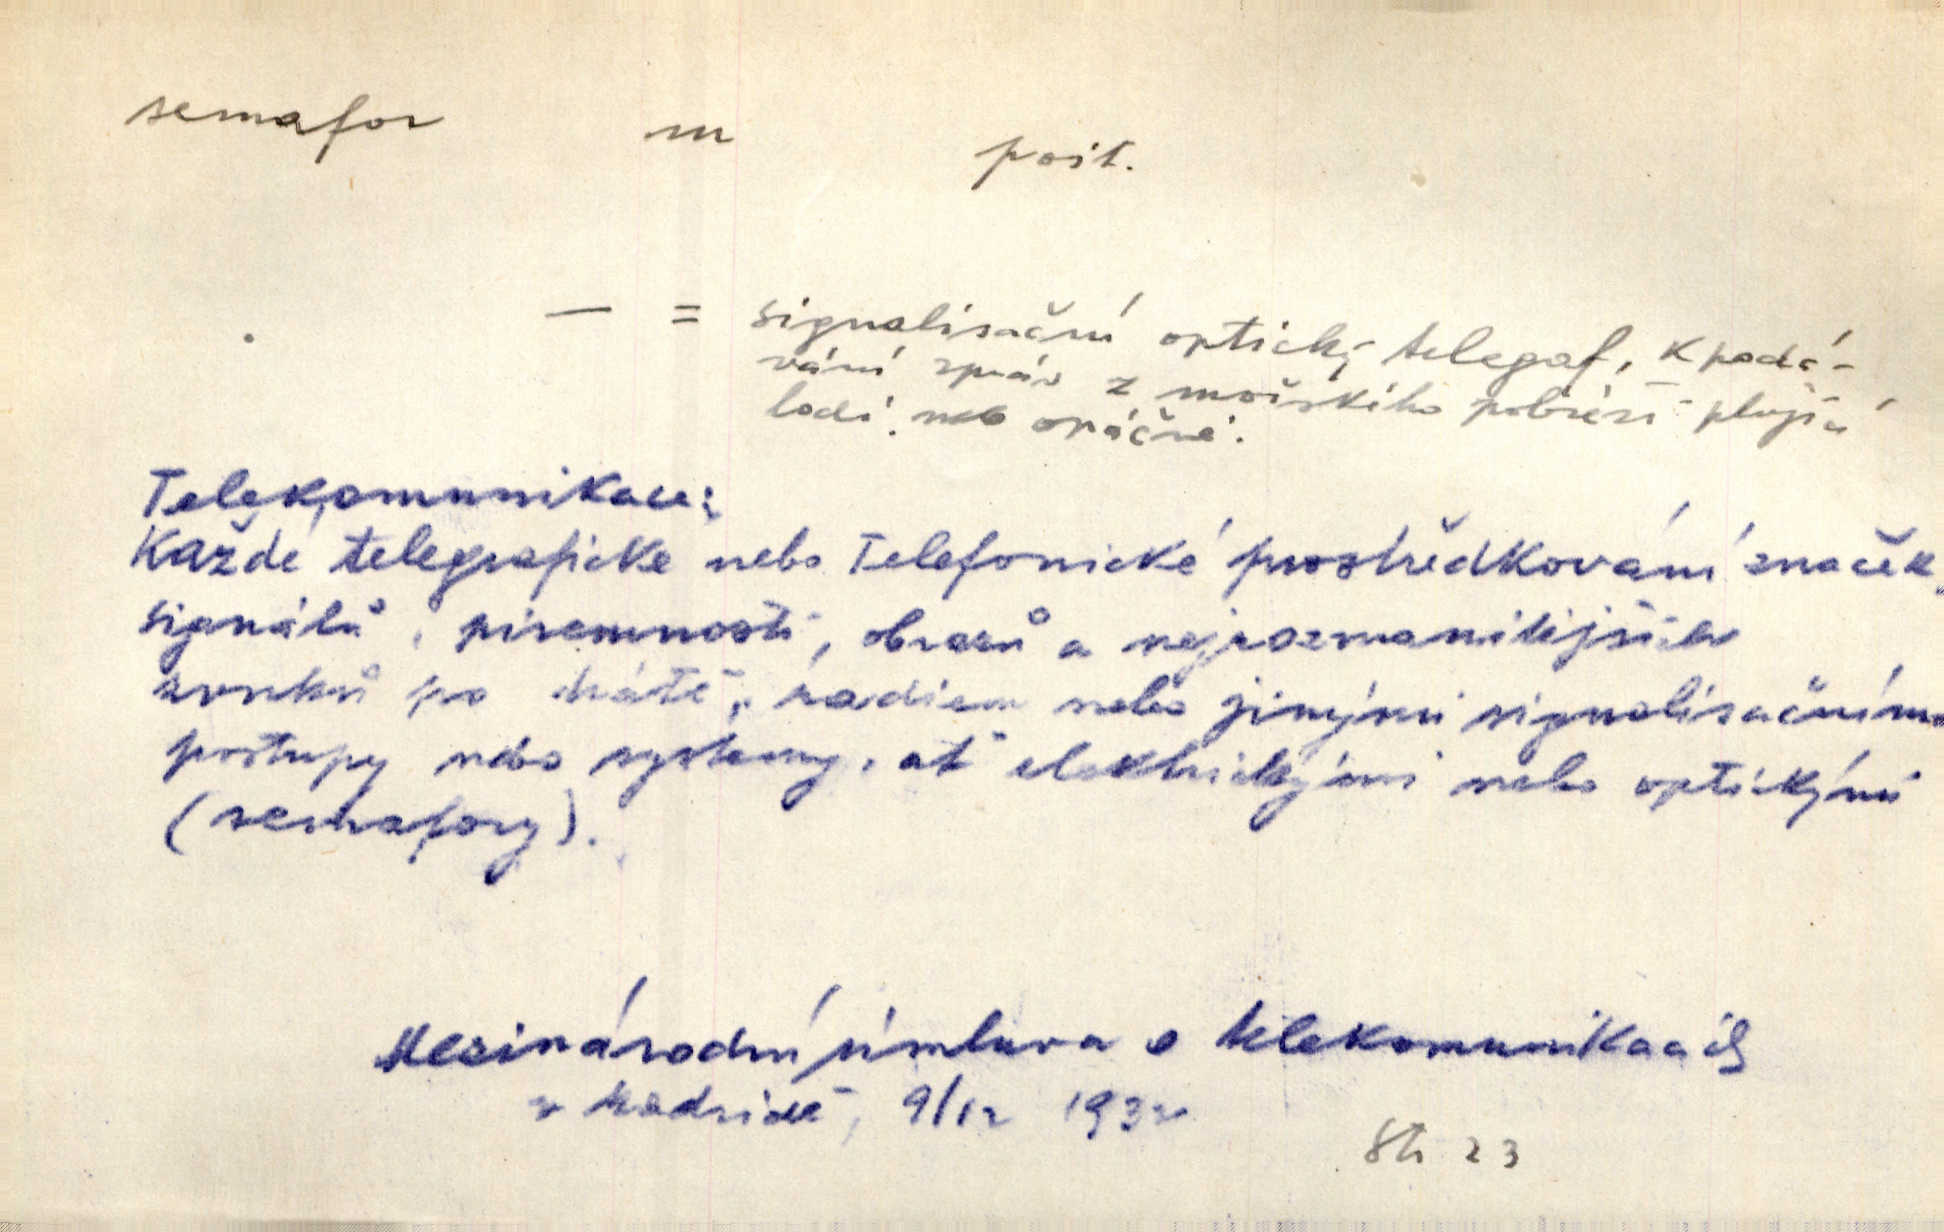 semafor m pošt.
— = signalisační optický telegaf, k podá-
vání zpráv z mořského pobřeží plující
lodi neb opáčně.
Telekomunikace:
Každé telegrafické nebo telefonické prostředkování značek,
signálů, písemností, obrazů a nejrozmanitějších
zvuků po drátě, radiem nebo jinými signalisačními
postupy nebo systemy, ať elektrickými nebo optickými
(semafory).
Mezinárodní úmluva o telekomunikacích
v Madridě, 9/12 1932
Str 23